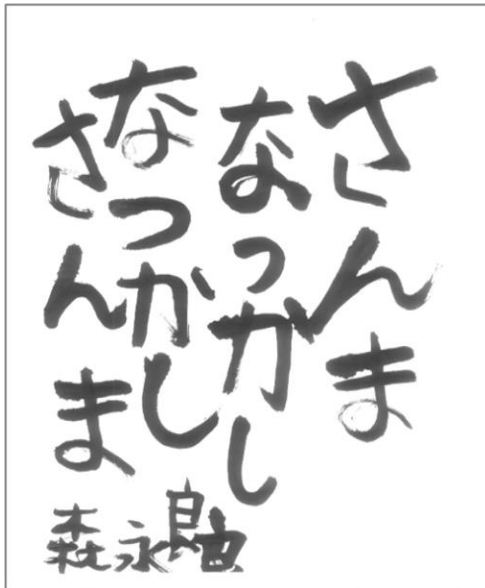 さんま
なつかし
なつかし
さんま
森永